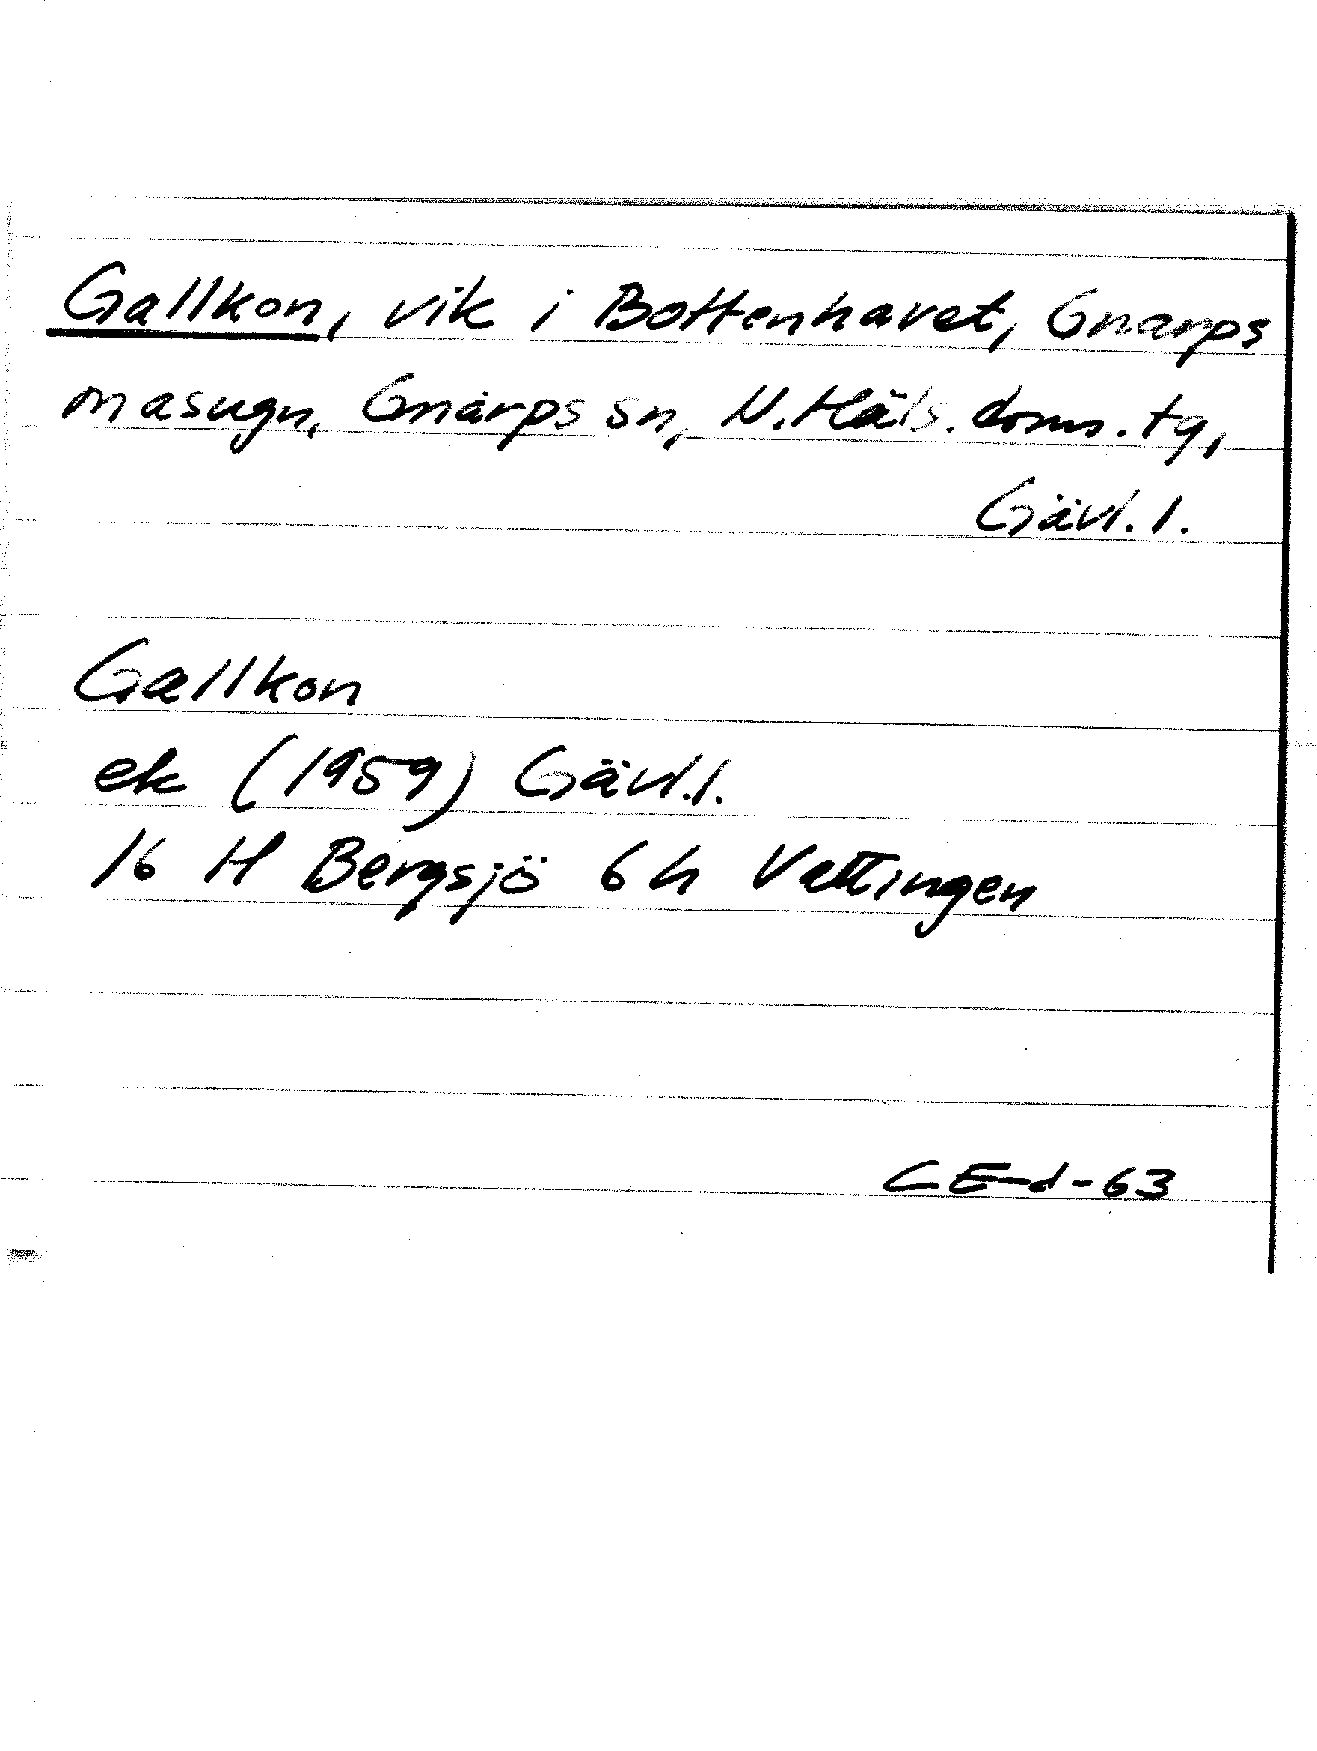 Gallkon, vik i Bottenhavet, Gnarps
masugn, Gnarps sn, N. Häls. doms. tg,
Gävl. l.
Gallkon
ek (1959) Gävl. l.
16 H Bergsjö 6 h Vattingen
CE-d-63